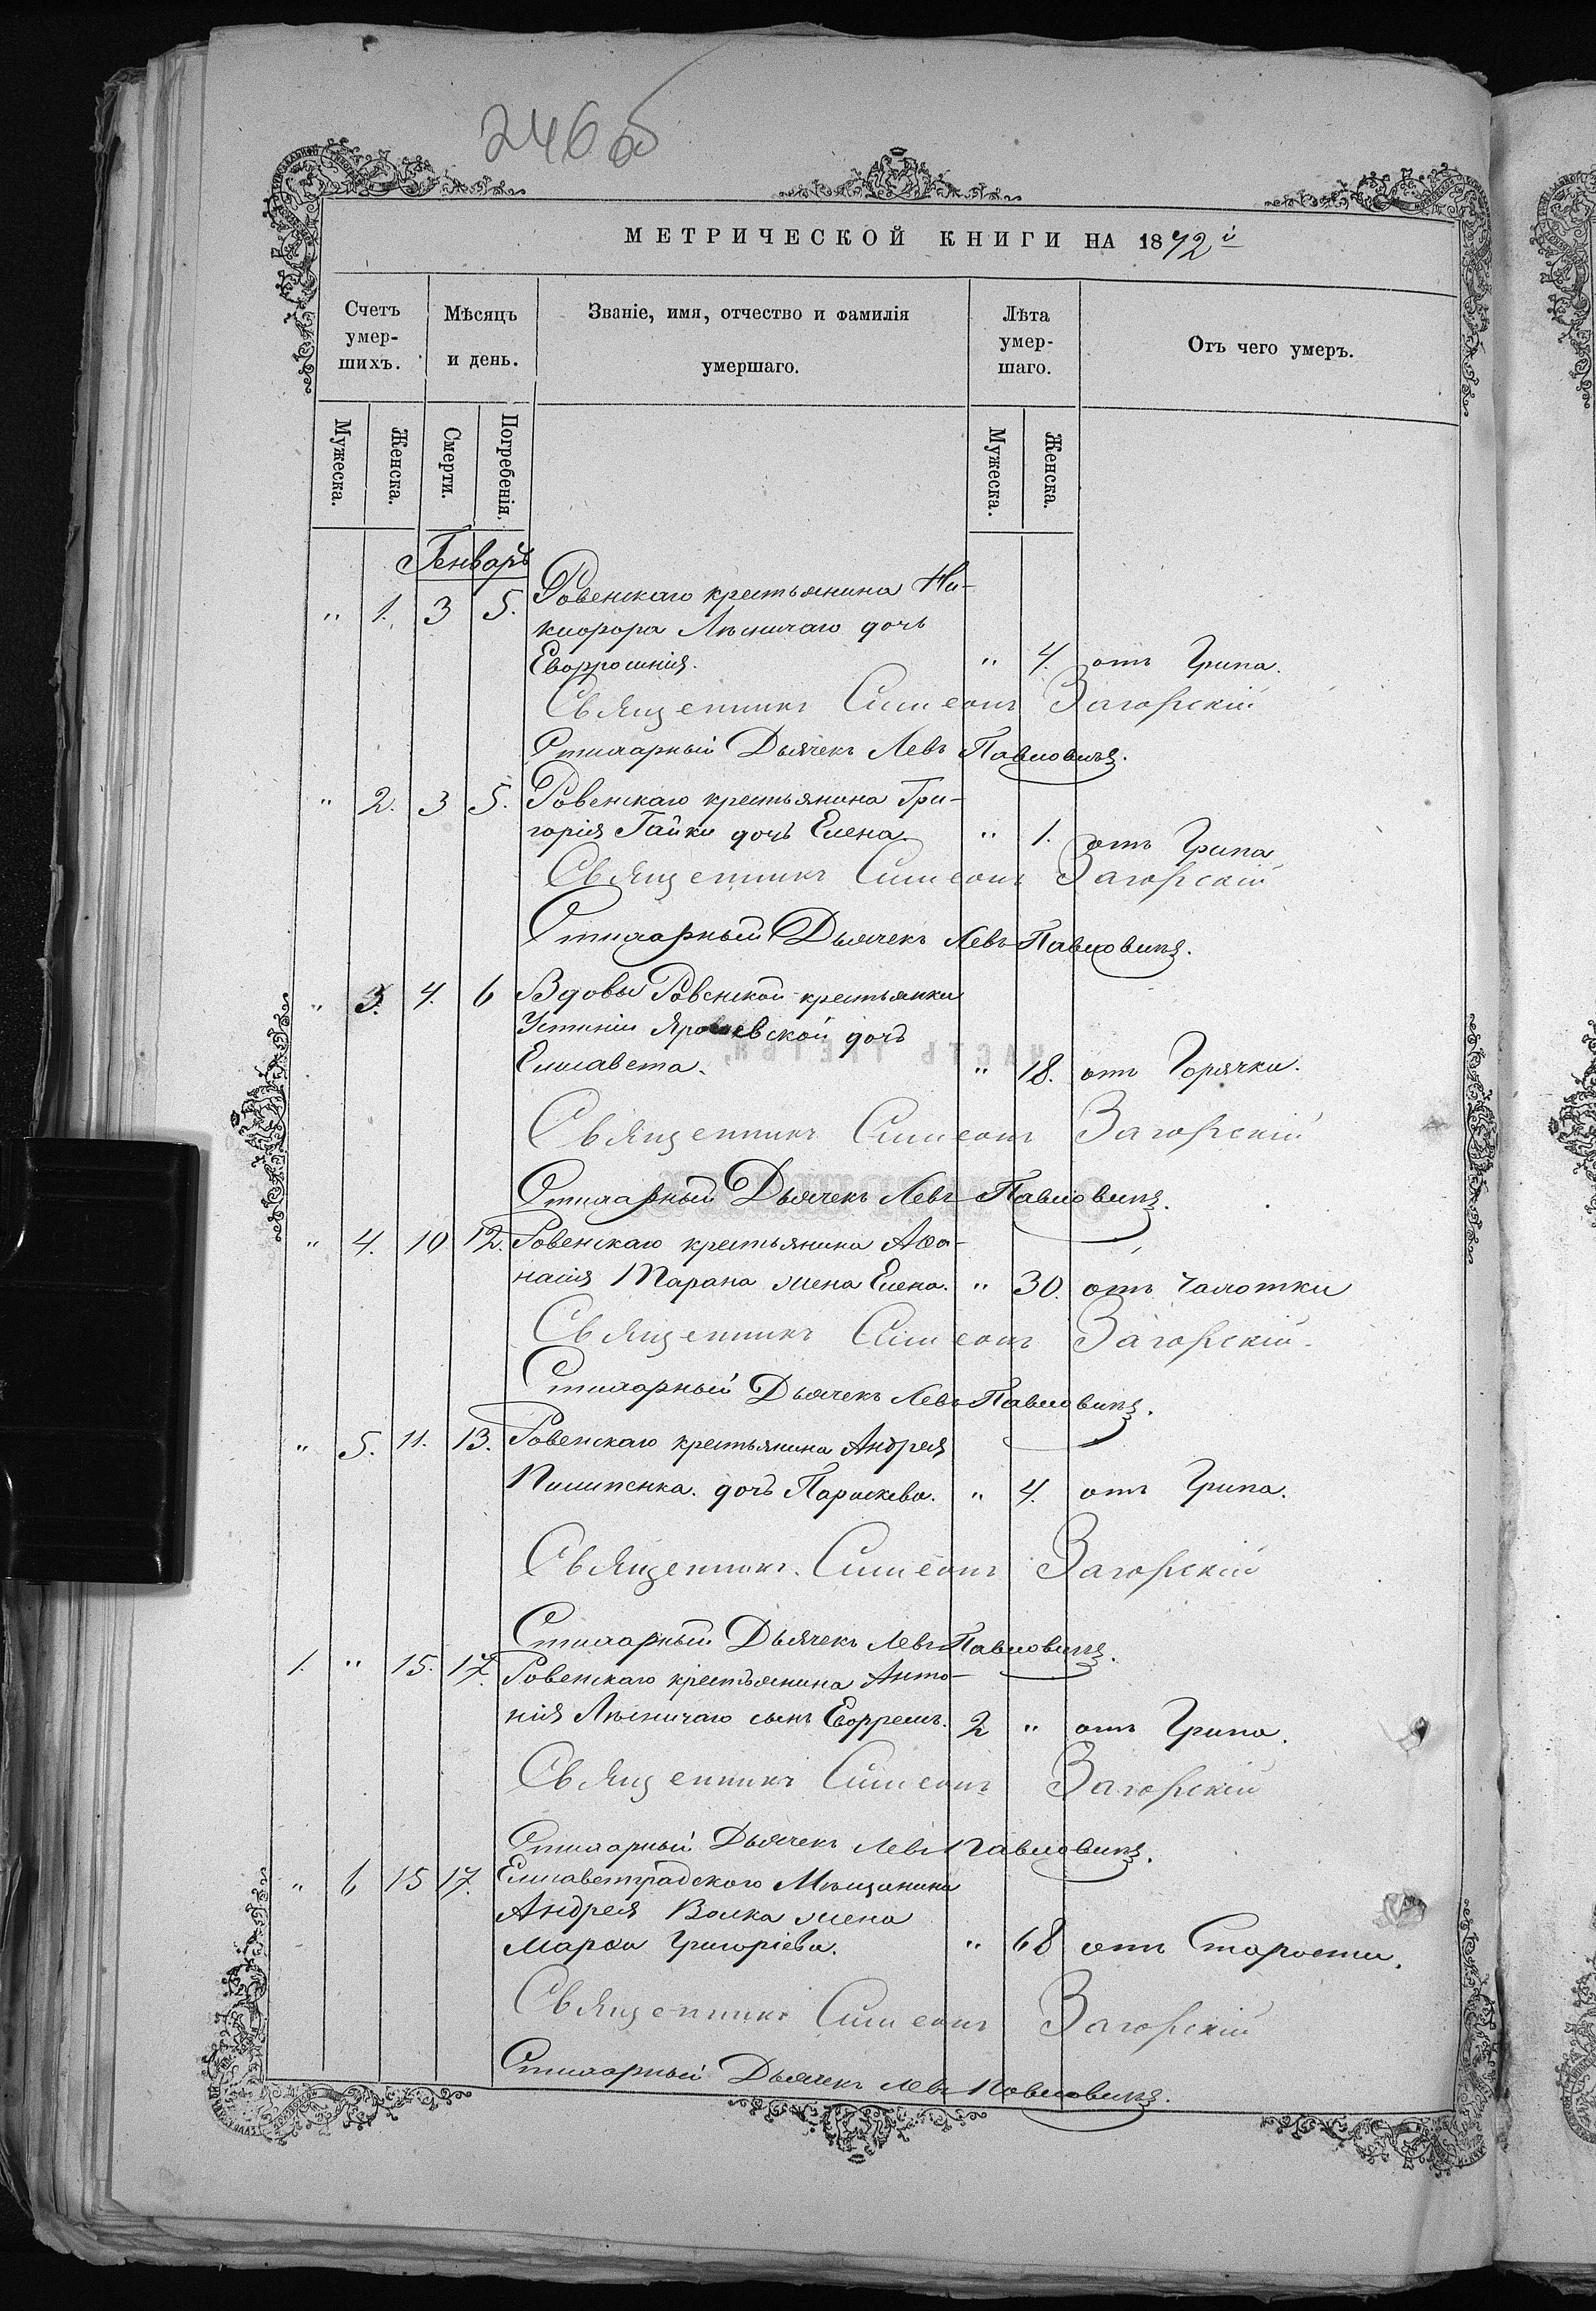 246 об
МЕТРИЧЕСКОЙ КНИГИ НА 1872й
Счетъ умер-шихъ. Мѣсяцъ и день. Званіе, имя, отчество и фамилія умершаго. Лѣта умер-шаго. Отъ чего умеръ.
Мужеска. Женска. Смерти. Погребенія. Мужеска. Женска.
Генварь
" 1. 3 5. Ровенскаго крестьянина Ни-
кифора Лѣсничаго дочь
Евфросинія. " 4. отъ Грипа.
Священникъ Симеонъ Загорскій
Стихарный Дьячекъ Левъ Павловичъ.
" 2. 3 5. Ровенскаго крестьянина Гри-
горія Гайки дочь Елена " 1. отъ Грипа
Священникъ Симеонъ Загорскій
Стихарный Дьячекъ Левъ Павловичъ.
" 3. 4. 6 Вдовы Ровенской крестьянки
Устиніи дочь
Елисавета. " 18. отъ Горячки.
Священникъ Симеонъ Загорскій
Стихарный Дьячекъ Левъ Павловичъ.
" 4. 10 12. Ровенскаго крестьянина Аѳа-
насія Тарана жена Елена. " 30. отъ Чахотки
Священникъ Симеонъ Загорскій
Стихарный Дьячекъ Левъ Павловичъ.
" 5. 11. 13. Ровенскаго крестьянина Андрея
Пилипенка. дочь Параскева. " 4. отъ Грипа.
Священникъ Симеонъ Загорскій
Стихарный Дьячекъ Левъ Павловичъ.
1. " 15. 17. Ровенскаго крестьянина Анто-
нія Лѣсничаго сынъ Ефремъ. 2 " отъ Грипа.
Священникъ Симеонъ Загорскій
Стихарный Дьячекъ Левъ Павловичъ.
" 6 15 17. Елисаветградского Мѣщанина
Андрея Волка жена
Марѳа Григоріева. " 68 отъ Старости.
Священникъ Симеонъ Загорскій
Стихарный Дьячекъ Левъ Павловичъ.